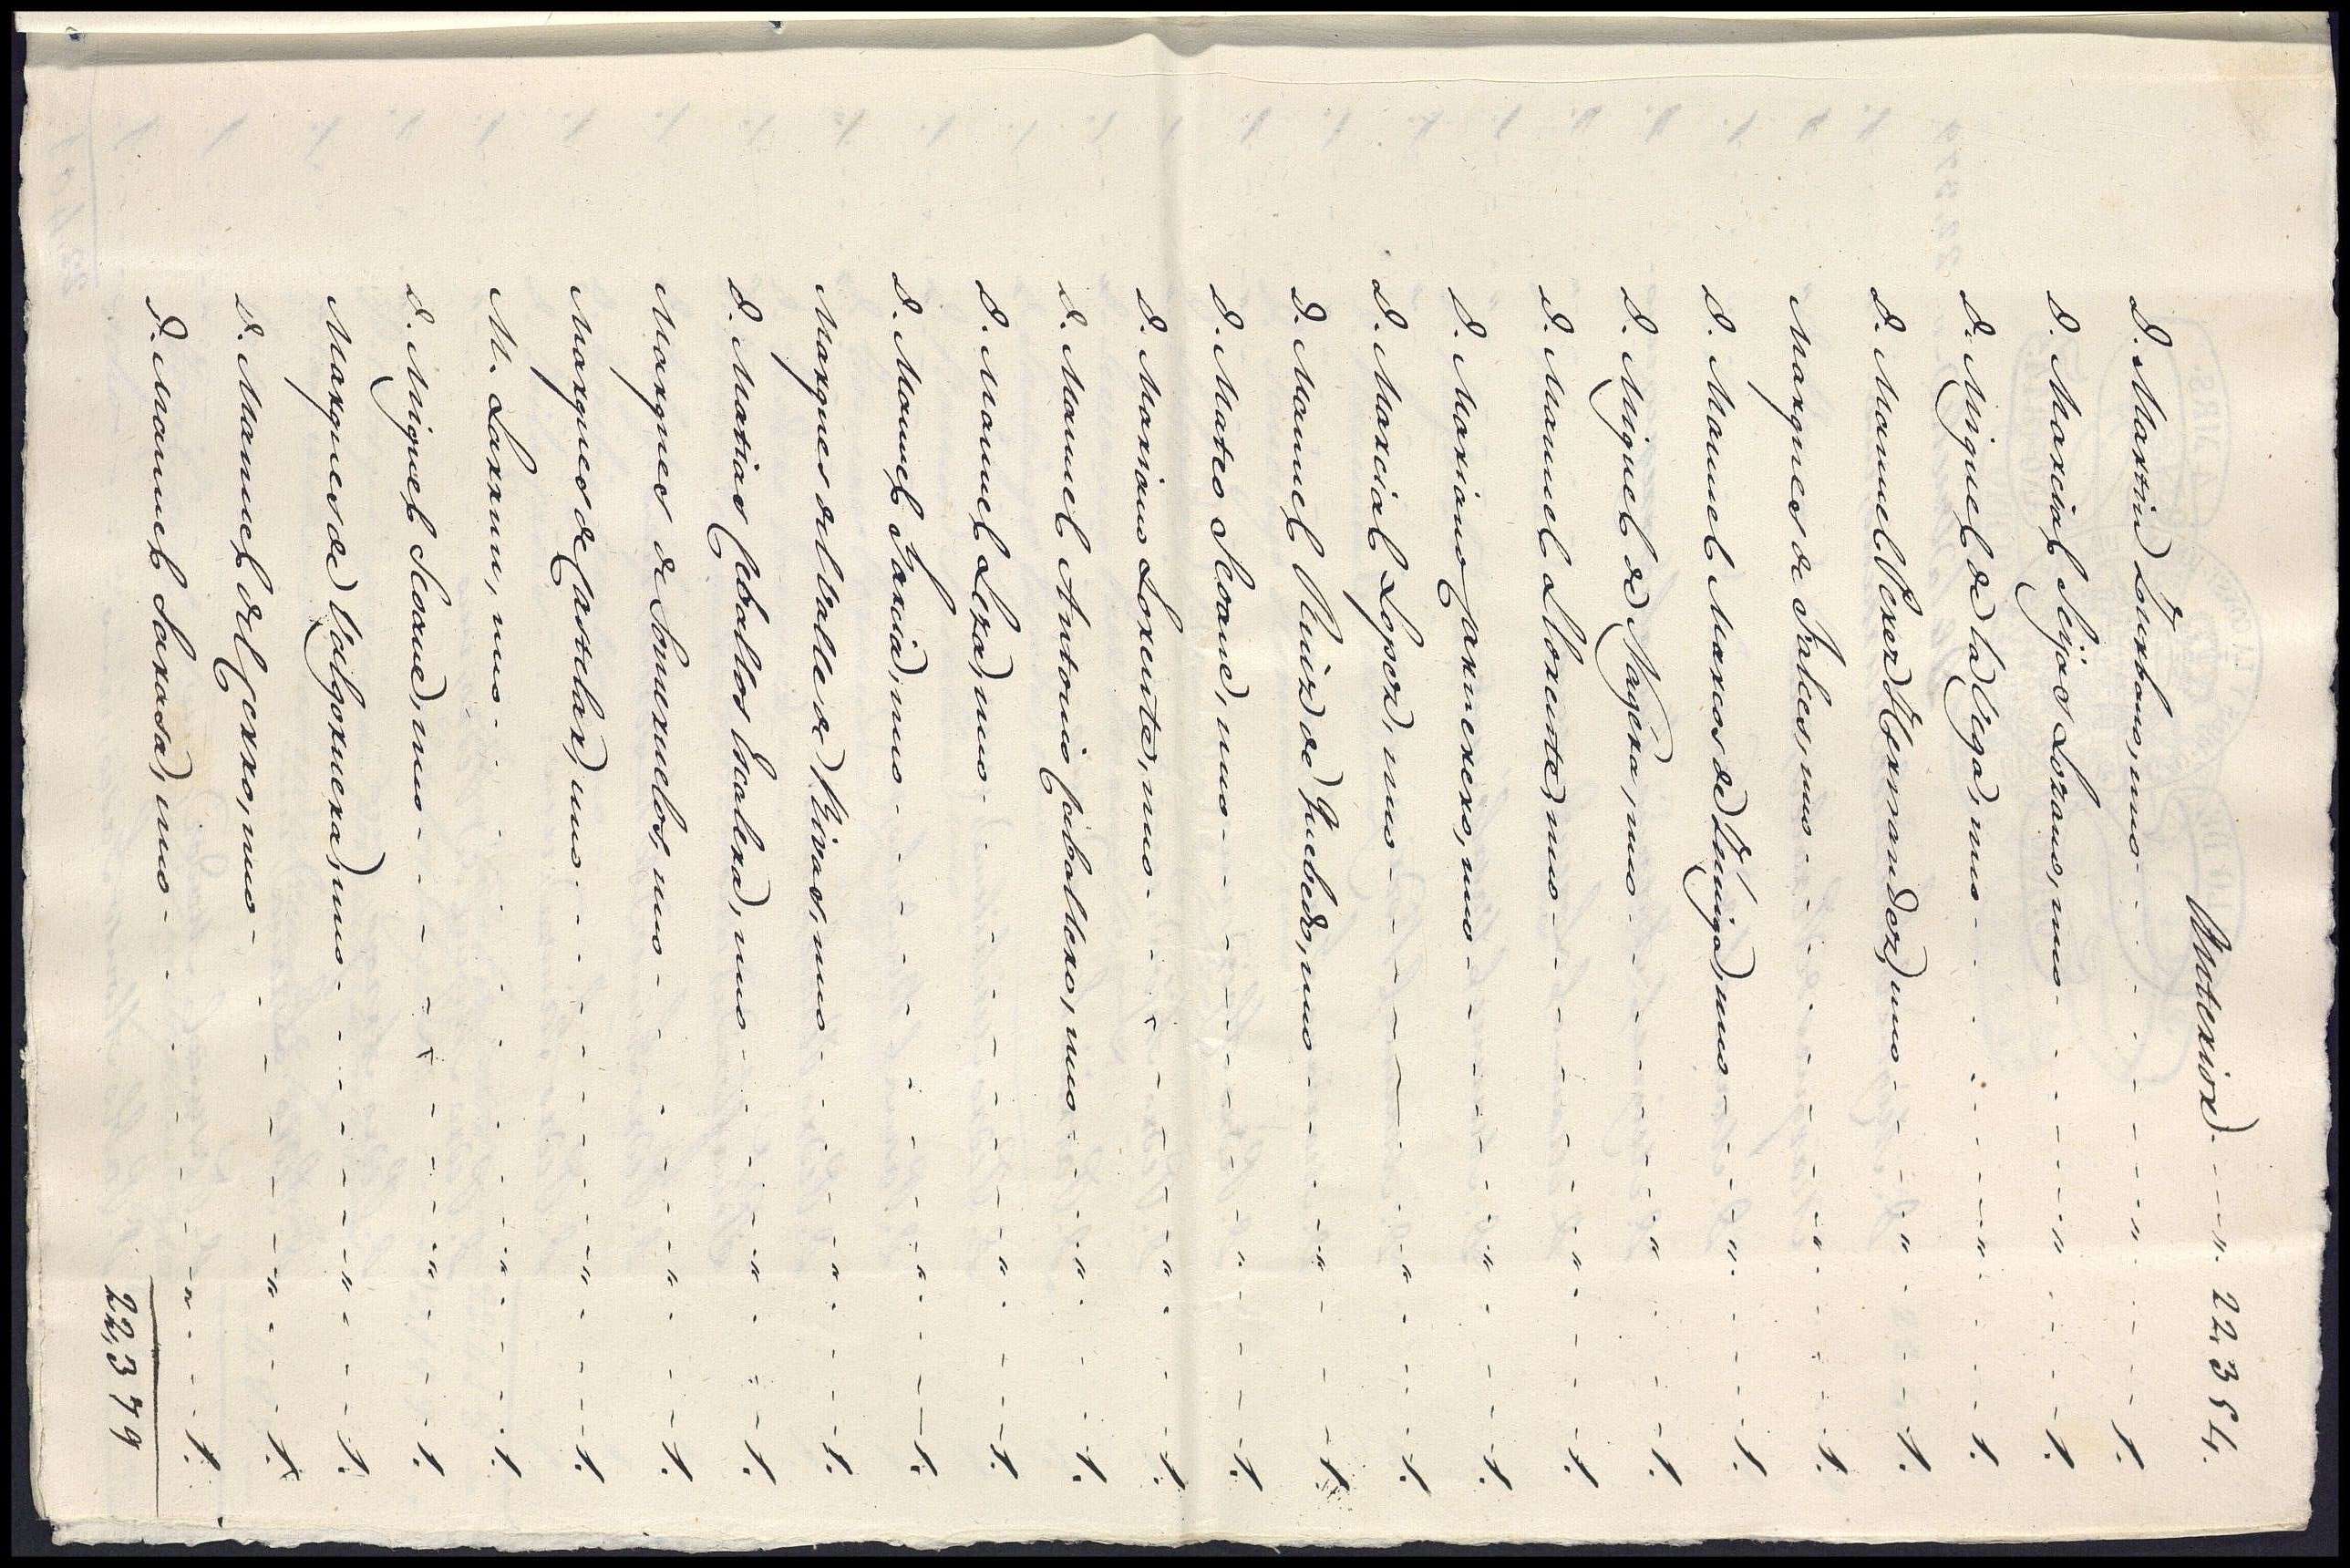 Anterior. - - - " 22,354.
D. Martin Zurbano, uno - - - - " - - - 1.
D. Marcial Seijas Lozano, uno - - - - " - - - 1.
D. Miguel de la Vega, uno - - - - " - - - 1.
D. Manuel Perez Hernandez, uno - - - - " - - - 1.
Marques de Falces, uno - - - - " - - - 1.
D. Manuel Marcos de Zuñiga, uno - - - - " - - - 1.
D. Miguel de Nagera, uno - - - - " - - - 1.
D. Manuel Llorente, uno - - - - " - - - 1.
D. Mariano Carnerero, uno - - - - " - - - 1.
D. Marcial Lopez, uno - - - - " - - - 1.
D. Manuel Ruiz de Quebedo, uno - - - - " - - - 1.
D. Mateo Seoane, uno - - - - " - - - 1.
D. Mariano Lorente, uno - - - - " - - - 1.
D. Manuel Antonio Caballero, uno - - - - " - - - 1.
D. Manuel Leza, uno - - - - " - - - 1.
D. Manuel Garcia, uno - - - - " - - - 1.
Marques del Valle de Rivas, uno - - - - " - - - 1.
D. Matias Ceballos Escalera, uno - - - - " - - - 1.
Marques de Someruelos, uno - - - - " - - - 1.
Marques de Castelar, uno - - - - " - - - 1.
M. Larruu, uno - - - - " - - - 1.
D. Miguel Seoane, uno - - - - " - - - 1.
Marques de Valgornera, uno - - - - " - - - 1.
D. Manuel del Cerro, uno - - - - " - - - 1.
D. Manuel Sarosa, uno - - - - " - - - 1.
22,379